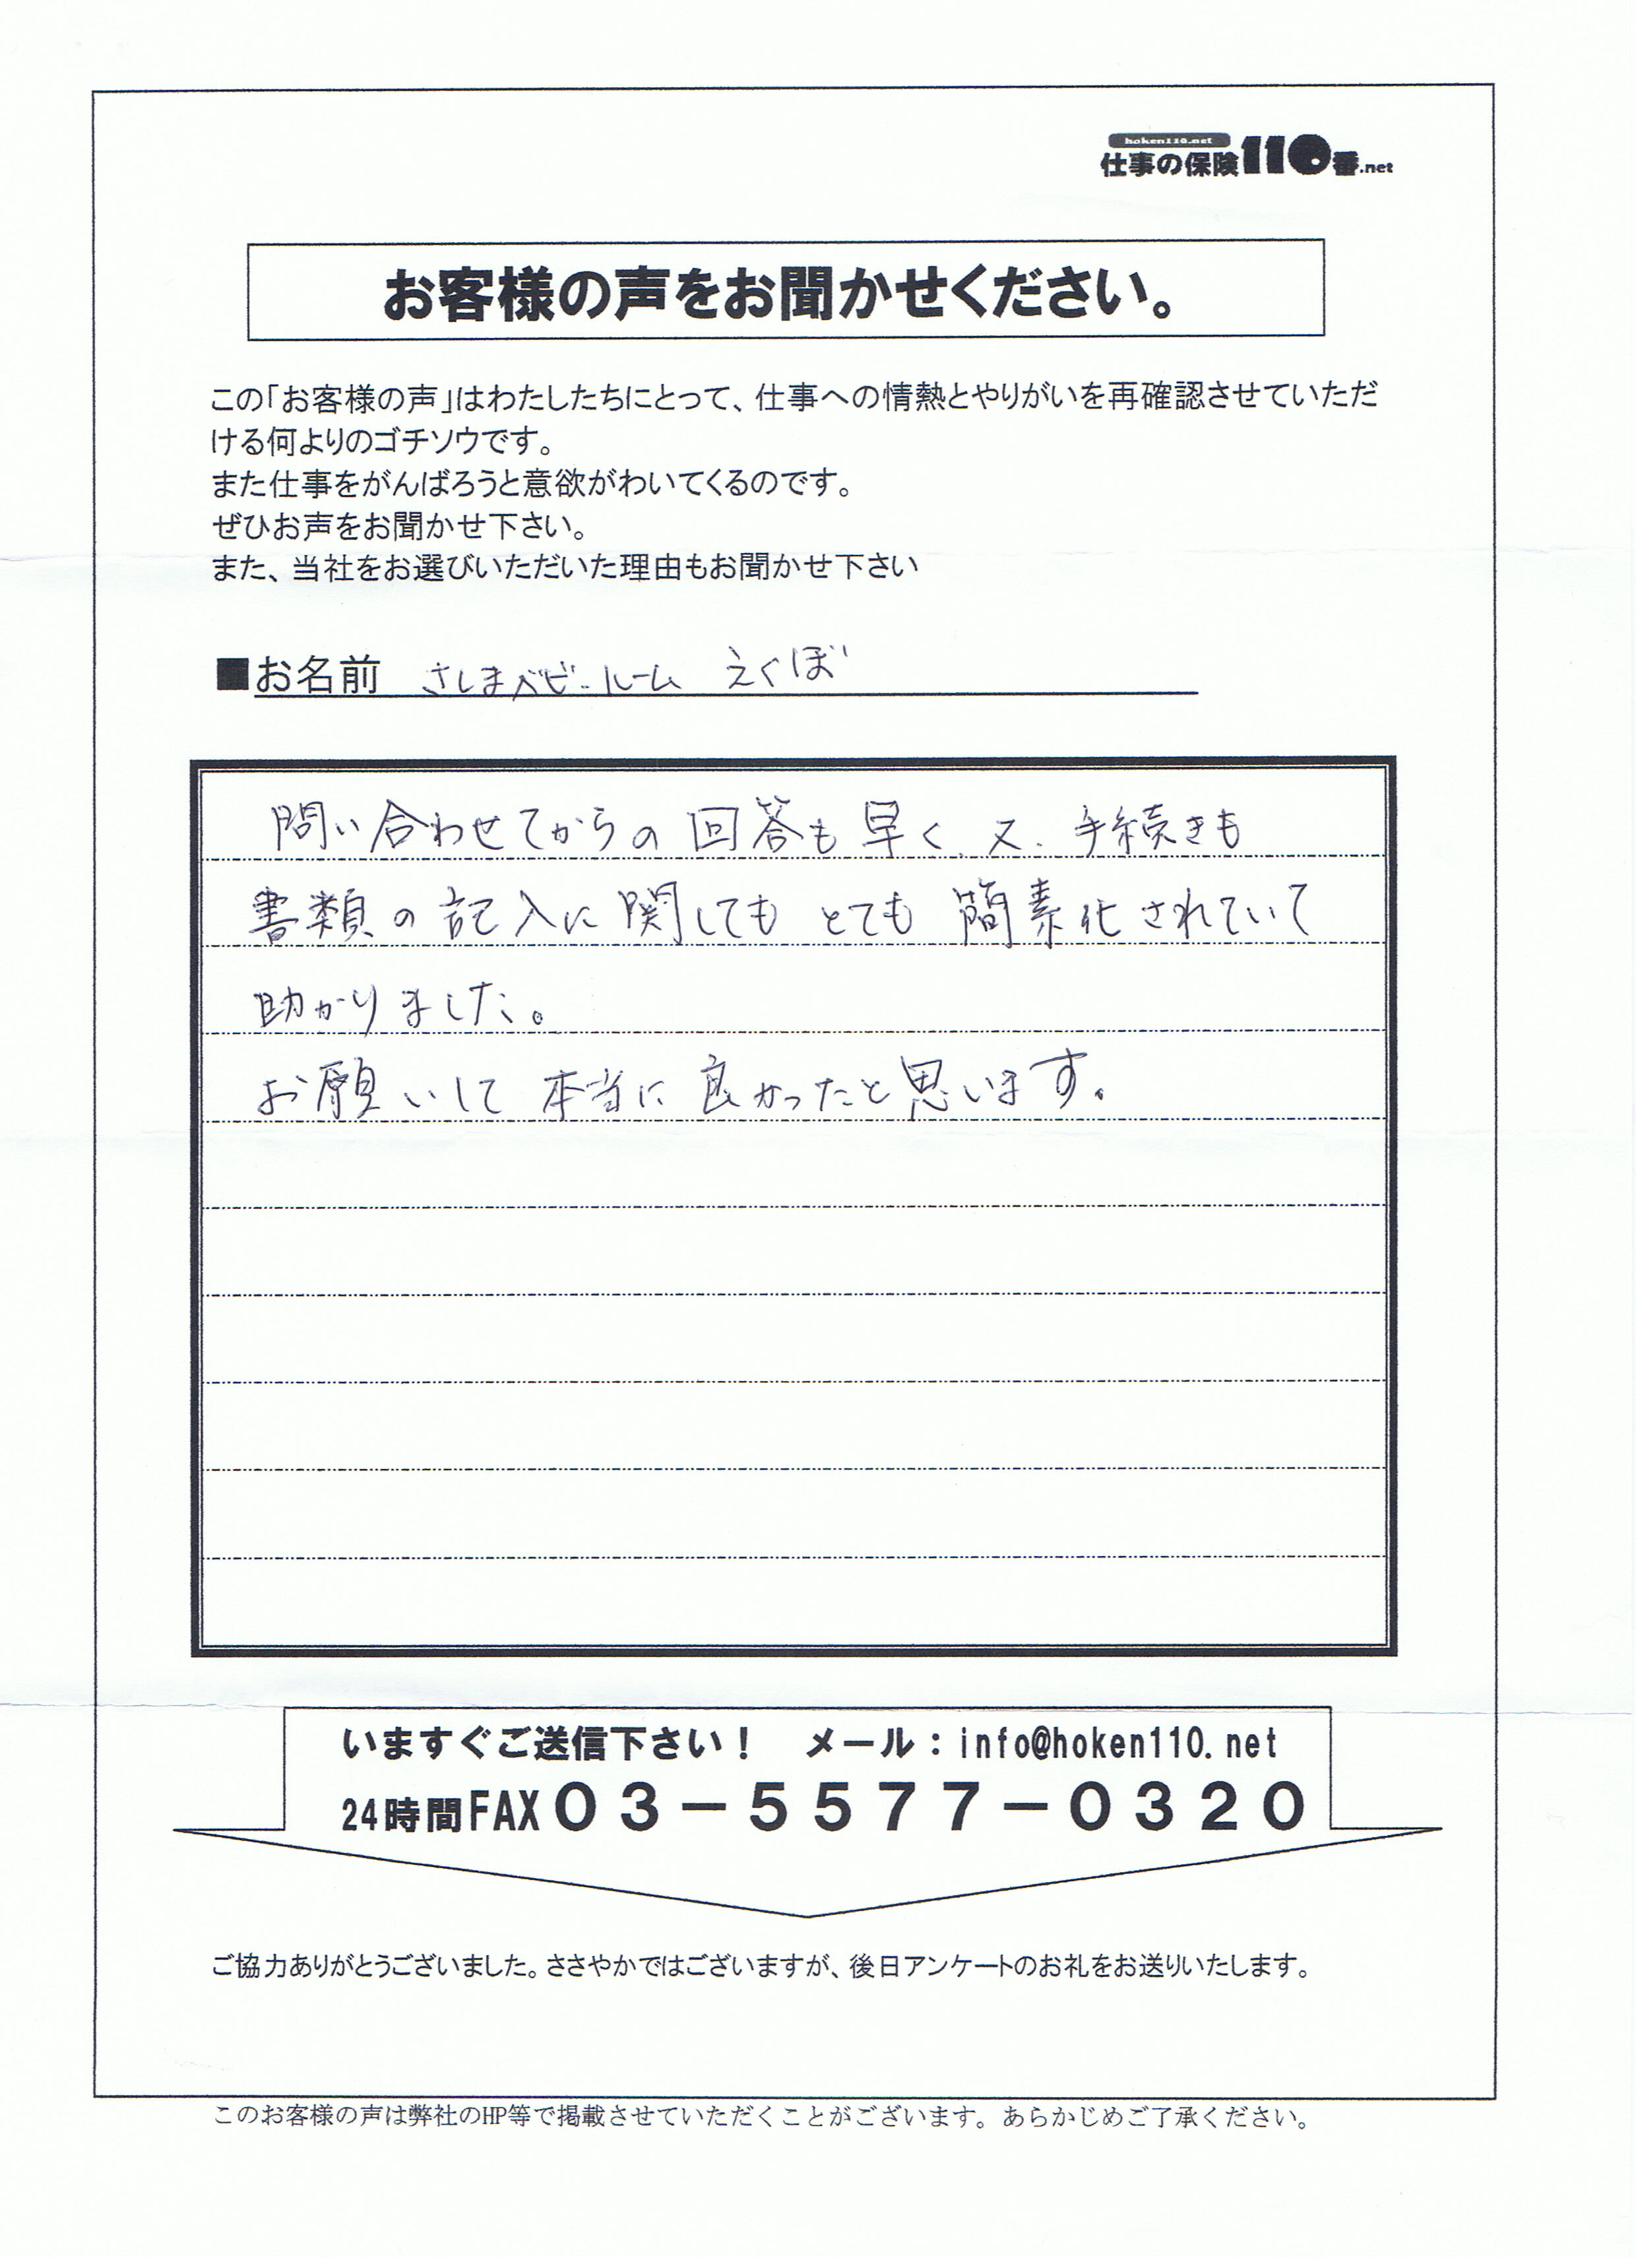 hoken110.net
仕事の保険110番.net
お客様の声をお聞かせください。
この「お客様の声」はわたしたちにとって、仕事への情熱とやりがいを再確認させていただ
ける何よりのゴチソウです。
また仕事をがんばろうと意欲がわいてくるのです。
ぜひお声をお聞かせ下さい。
また、当社をお選びいただいた理由もお聞かせ下さい
■お名前 さしまベビールーム えくぼ
問い合わせてからの回答も早く、又、手続きも
書類の記入に関してもとても簡素化されていて
助かりました。
お願いして本当に良かったと思います。
いますぐご送信下さい！ メール：info@hoken110.net
24時間FAX０３－５５７７－０３２０
ご協力ありがとうございました。ささやかではございますが、後日アンケートのお礼をお送りいたします。
このお客様の声は弊社のHP等で掲載させていただくことがございます。あらかじめご了承ください。